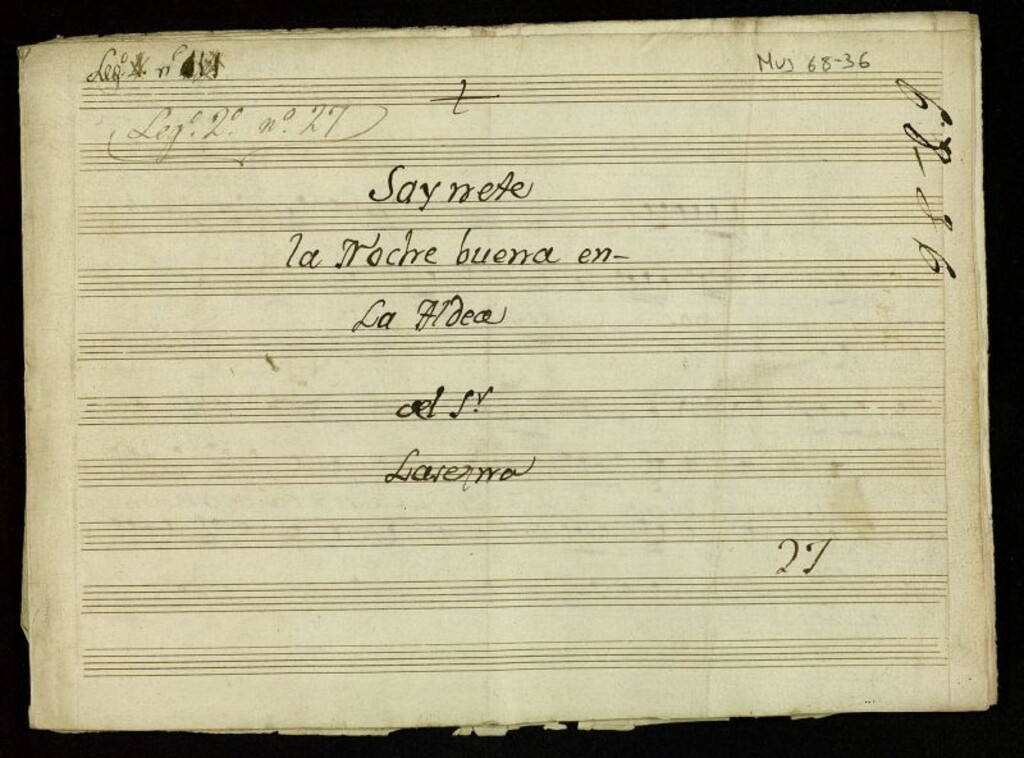 Leg.º nº
Mus 68-36
Leg.º 2.º nº. 27
68-36
Saynete
la Noche buena en-
La Aldea
del S.r
Laserna
27